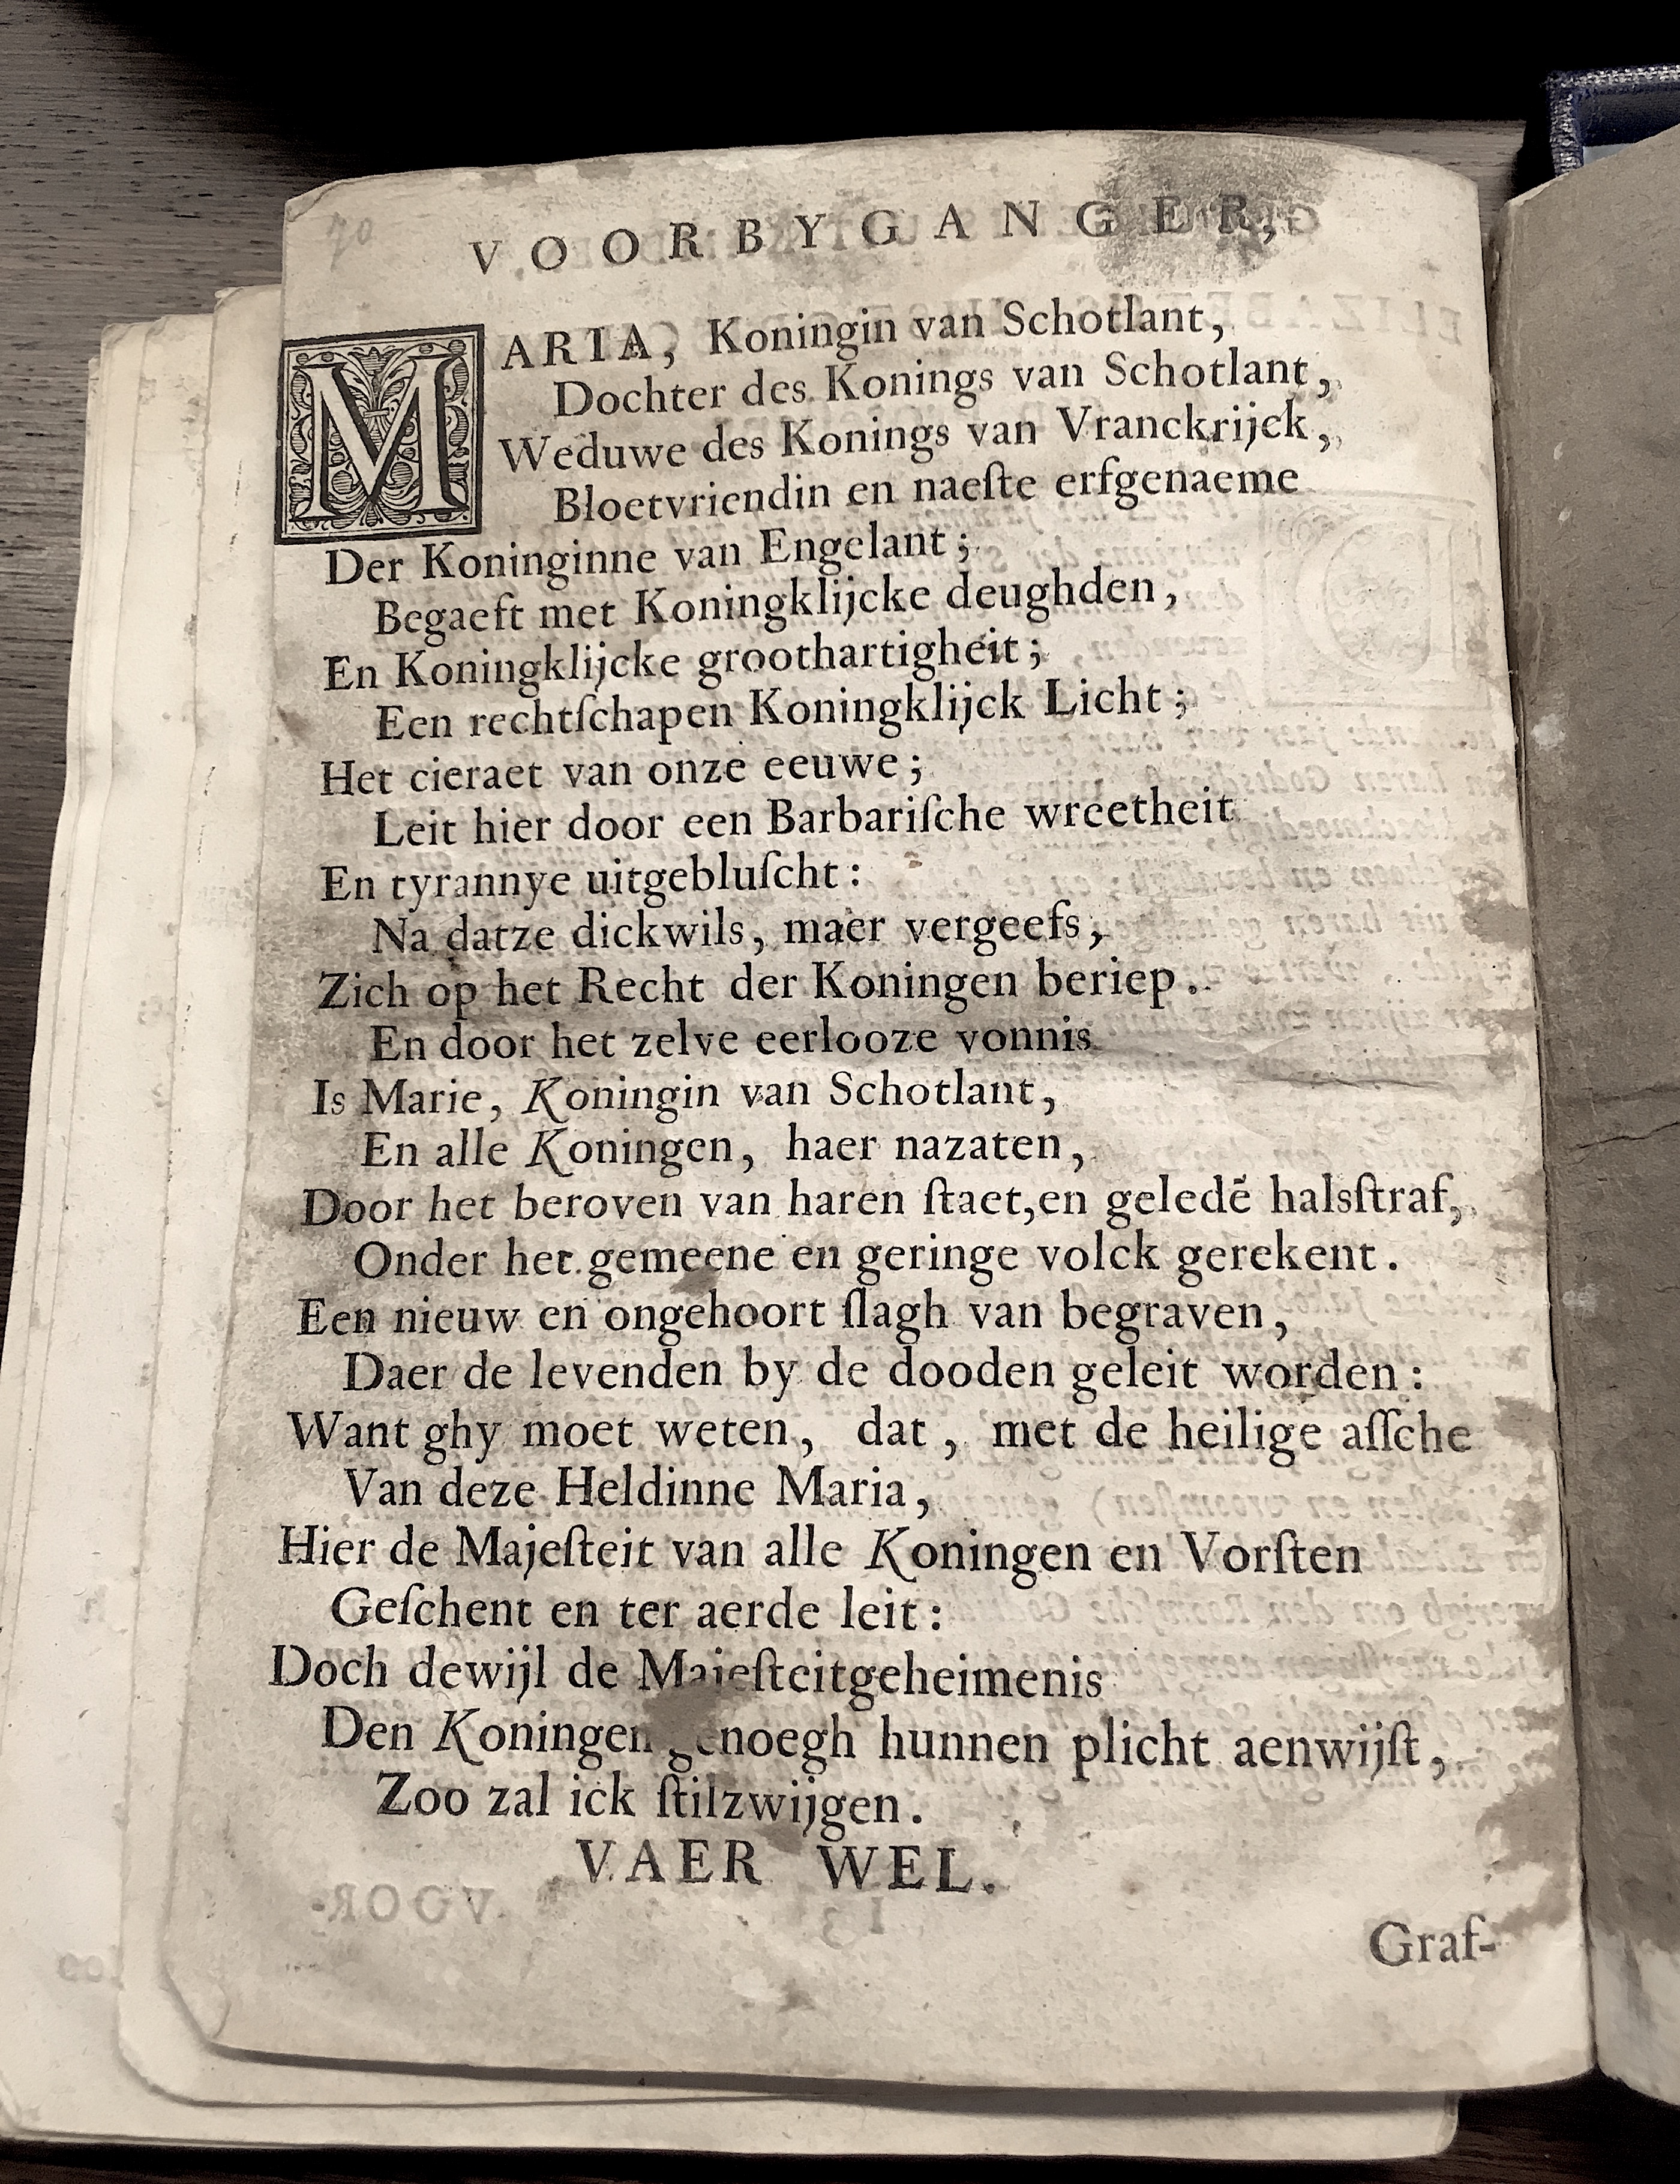 70
VOORBYGANGER,
MARIA, Koningin van Schotlant,
Dochter des Konings van Schotlant,
Weduwe des Konings van Vranckrijck,
Bloetvriendin en naeſte erfgenaeme
Der Koninginne van Engelant;
Begaeft met Koningklijcke deughden,
En Koningklijcke groothartigheit;
Een rechtſchapen Koningklijck Licht;
Het cieraet van onze eeuwe;
Leit hier door een Barbariſche wreetheit
En tyrannye uitgebluſcht:
Na datze dickwils, maer vergeefs,
Zich op het Recht der Koningen beriep.
En door het zelve eerlooze vonnis
Is Marie, Koningin van Schotlant,
En alle Koningen, haer nazaten,
Door het beroven van haren ſtaet,en geledē halsſtraf,
Onder het gemeene en geringe volck gerekent.
Een nieuw en ongehoort ſlagh van begraven,
Daer de levenden by de dooden geleit worden:
Want ghy moet weten, dat, met de heilige aſſche
Van deze Heldinne Maria,
Hier de Majeſteit van alle Koningen en Vorſten
Geſchent en ter aerde leit:
Doch dewijl de Majeſteitgeheimenis
Den Koningen genoegh hunnen plicht aenwijſt,
Zoo zal ick ſtilzwijgen.
VAER WEL.
Graf-